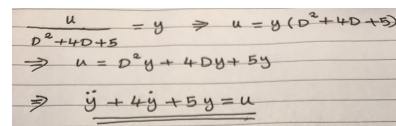 u / D²+4D+5 = y ⇒ u = y(D²+4D+5)
⇒ u = D²y + 4Dy + 5y
⇒ ÿ + 4ẏ + 5y = u